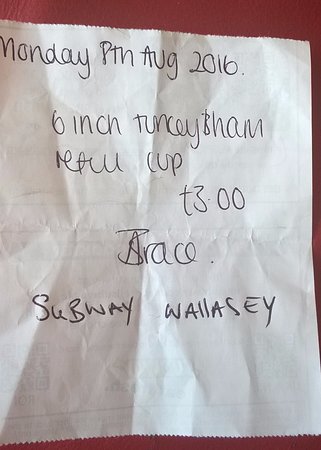 Monday 8th Aug 2016.
6 inch turkey & ham
refill cup
£3.00
Grace.
SUBWAY WALLASEY